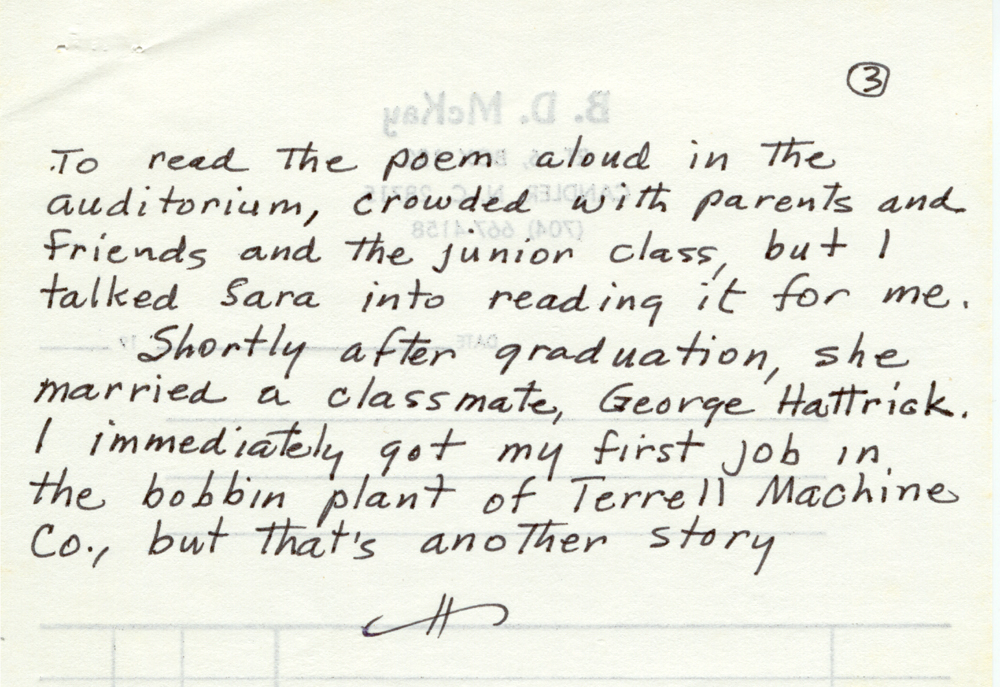 ③
To read the poem aloud in the
auditorium, crowded with parents and
friends and the junior class, but I
talked Sara into reading it for me.
Shortly after graduation, she
married a classmate, George Hattrick.
I immediately got my first job in
the bobbin plant of Terrell Machine
Co., but that's another story
B. D. McKay
CANDLER, N. C. 28715
(704) 667-4158
DATE
19